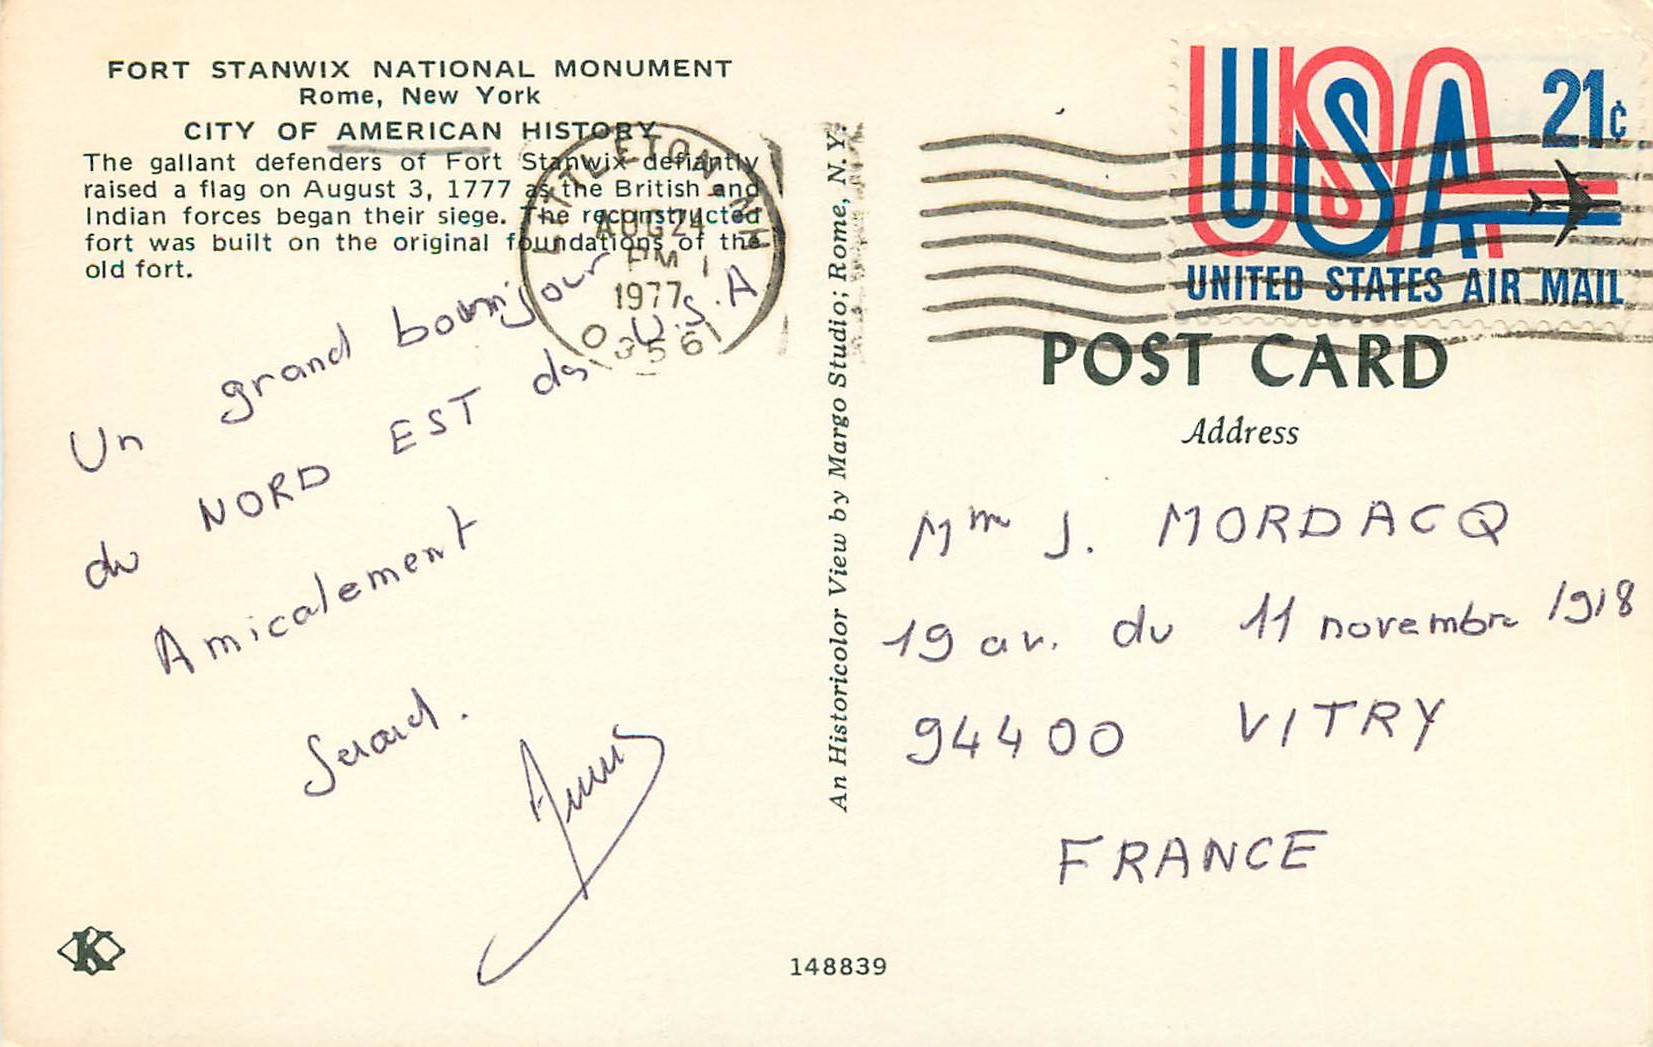 FORT STANWIX NATIONAL MONUMENT
Rome, New York
CITY OF AMERICAN HISTORY
The gallant defenders of Fort Stanwix defiantly
raised a flag on August 3, 1777 as the British and
Indian forces began their siege. The reconstructed
fort was built on the original foundations of the
old fort.
LITTLETON NH
AUG 24
PM
1977
03561
Un grand bonjour
du NORD EST ds U.S.A
Amicalement
Gerard.
K
148839
An Historicolor View by Margo Studio; Rome, N.Y.
USA 21¢
UNITED STATES AIR MAIL
POST CARD
Address
Mm J. MORDACQ
19 av. du 11 novembre 1918
94400 VITRY
FRANCE